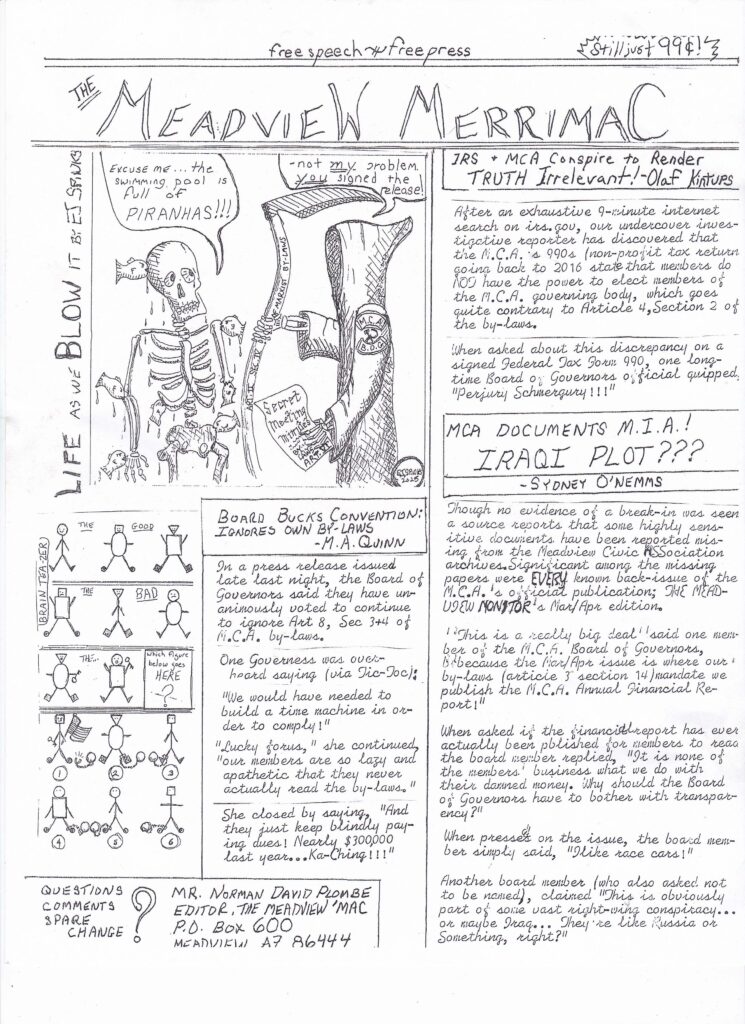 free speech free press
Still just 99¢!
THE
MEADVIEW MERRIMAC
LIFE AS WE BLOW IT BY EJ SPINKS
EXCUSE ME... the
swimming pool is
full of
PIRANHAS!!!
-not my problem
you signed the
release!
M.C.A.
B.O.G.
Secret
Meeting
Minutes
EJ SPINKS
2025
BOARD BUCKS CONVENTION:
IGNORES OWN BY-LAWS
-M.A. QUINN
In a press release issued
late last night, the Board of
Governors said they have un-
animously voted to continue
to ignore Art 8, Sec 3+4 of
M.C.A. by-laws.
One Governess was over-
hoard saying (via Tic-Toc):
"We would have needed to
build a time machine in or-
der to comply!"
"Lucky forus, " she continued,
"our members are so lazy and
apathetic that they never
actually read the by-laws."
She closed by saying, "And
they just keep blindly pay-
ing dues! Nearly $300,000
last year...Ka-Ching!!!"
BRAIN TEA-ZER
THE GOOD
THE BAD
THE...
Which figure
below goes
HERE
?
1 2 3
4 5 6
IRS + MCA Conspire to Render
TRUTH Irrelevant!-Olaf Kintups
After an exhaustive 9-minute internet
search on irs.gov, our undercover inves-
tigative reporter has discovered that
the M.C.A.'s 990s (non-profit tax return
going back to 2016 state that members do
NOT have the power to elect members of
the M.C.A. governing body, which goes
quite contrary to Article 4,Section 2 of
the by-laws.
When asked about this discrepancy on a
signed Federal Tax Form 990, one long-
time Board of Governors official quipped,
"Perjury Schmergury!!!"
MCA DOCUMENTS M.I.A.!
IRAQI PLOT???
-SYDNEY O'NEMMS
Though no evidence of a break-in was seen
a source reports that some highly sens-
itive documents have been reported mis-
ing from the Meadview Civic ASSociation
archives.Significant among the missing
papers were EVERY known back-issue of the
M.C.A.'s official publication; THE MEAD-
VIEW MONITOR's Mar/Apr edition.
"This is a really big deal" said one mem-
ber of the M.C.A. Board of Governors,
because the Mar/Apr issue is where our
by-laws (articie 3 section 14)mandate we
publish the M.C.A. Annual Financial Re-
port!"
When asked if the financial report has ever
actually been pblished for members to read
the board member replied, "It is none of
the members' business what we do with
their damned money. Why should the Board
of Governors have to bother with transpar-
ency?"
When pressed on the issue, the board mem-
ber simply said, "Ilike race cars!"
Another board member (who also asked not
to be named), claimed "This is obviously
part of some vast right-wing conspiracy...
or maybe Iraq... They're like Russia or
Something, right?"
QUESTIONS
COMMENTS
SPARE
CHANGE
?
MR. NORMAN DAVID PLOMBE
EDITOR, THE MEADVIEW 'MAC
P.O. BOX 600
MEADVIEW AZ 86444